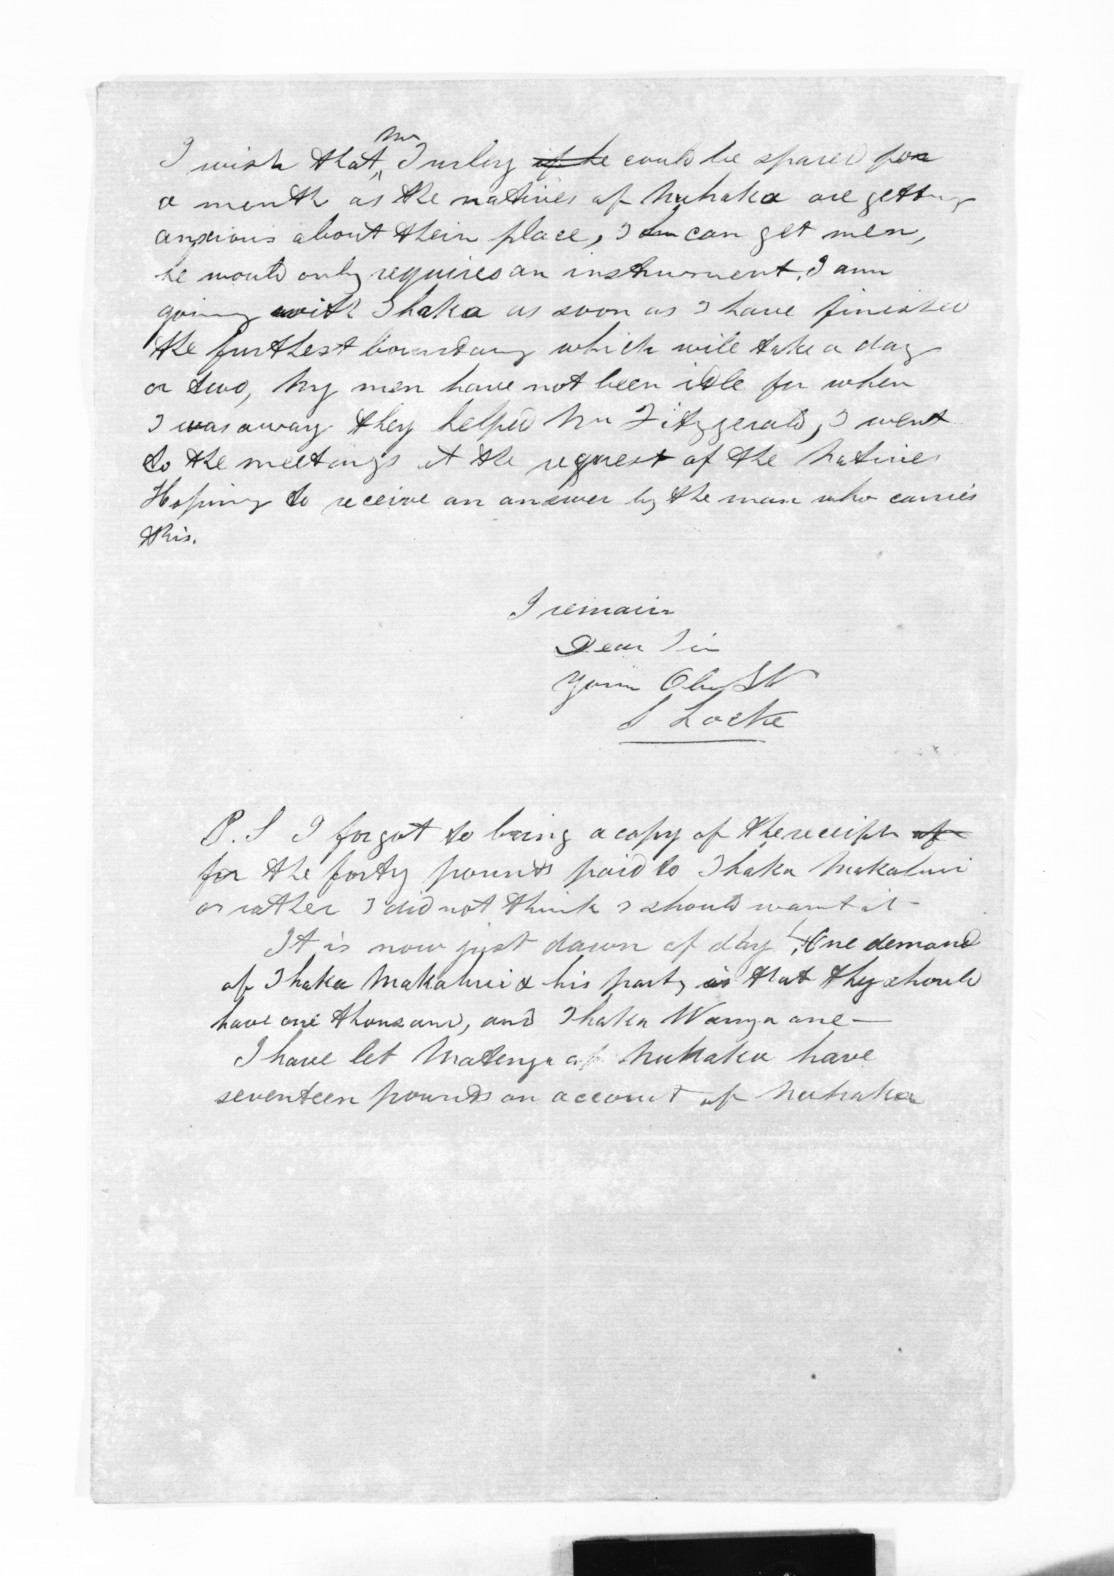 I wish that Mr Turley if he could be spared for
a month as the natives of Nuhaka are getting
anxious about their place, I can get men,
he would only requires an instrument. I am
going with Ihaka as soon as I have finished
the furthest boundary which will take a day
or two, My men have not been idle for when
I was away they helped Mr Fitzgerald, I went
to the meetings at the request of the Natives
Hoping to receive an answer by the man who carries
this.
I remain
Dear Sir
Your Obt St
S Locke
P. S I forgot to bring a copy of the receipt of
for the forty pounds paid to Ihaka Makahuri
or rather I did not think I should want it
It is now just dawn of day! One demand
of Ihaka Makahuri & his party is that they should
have one thousand, and Ihaka Wanga one—
I have let Matenga of Nuhaka have
seventeen pounds on account of Nuhaka